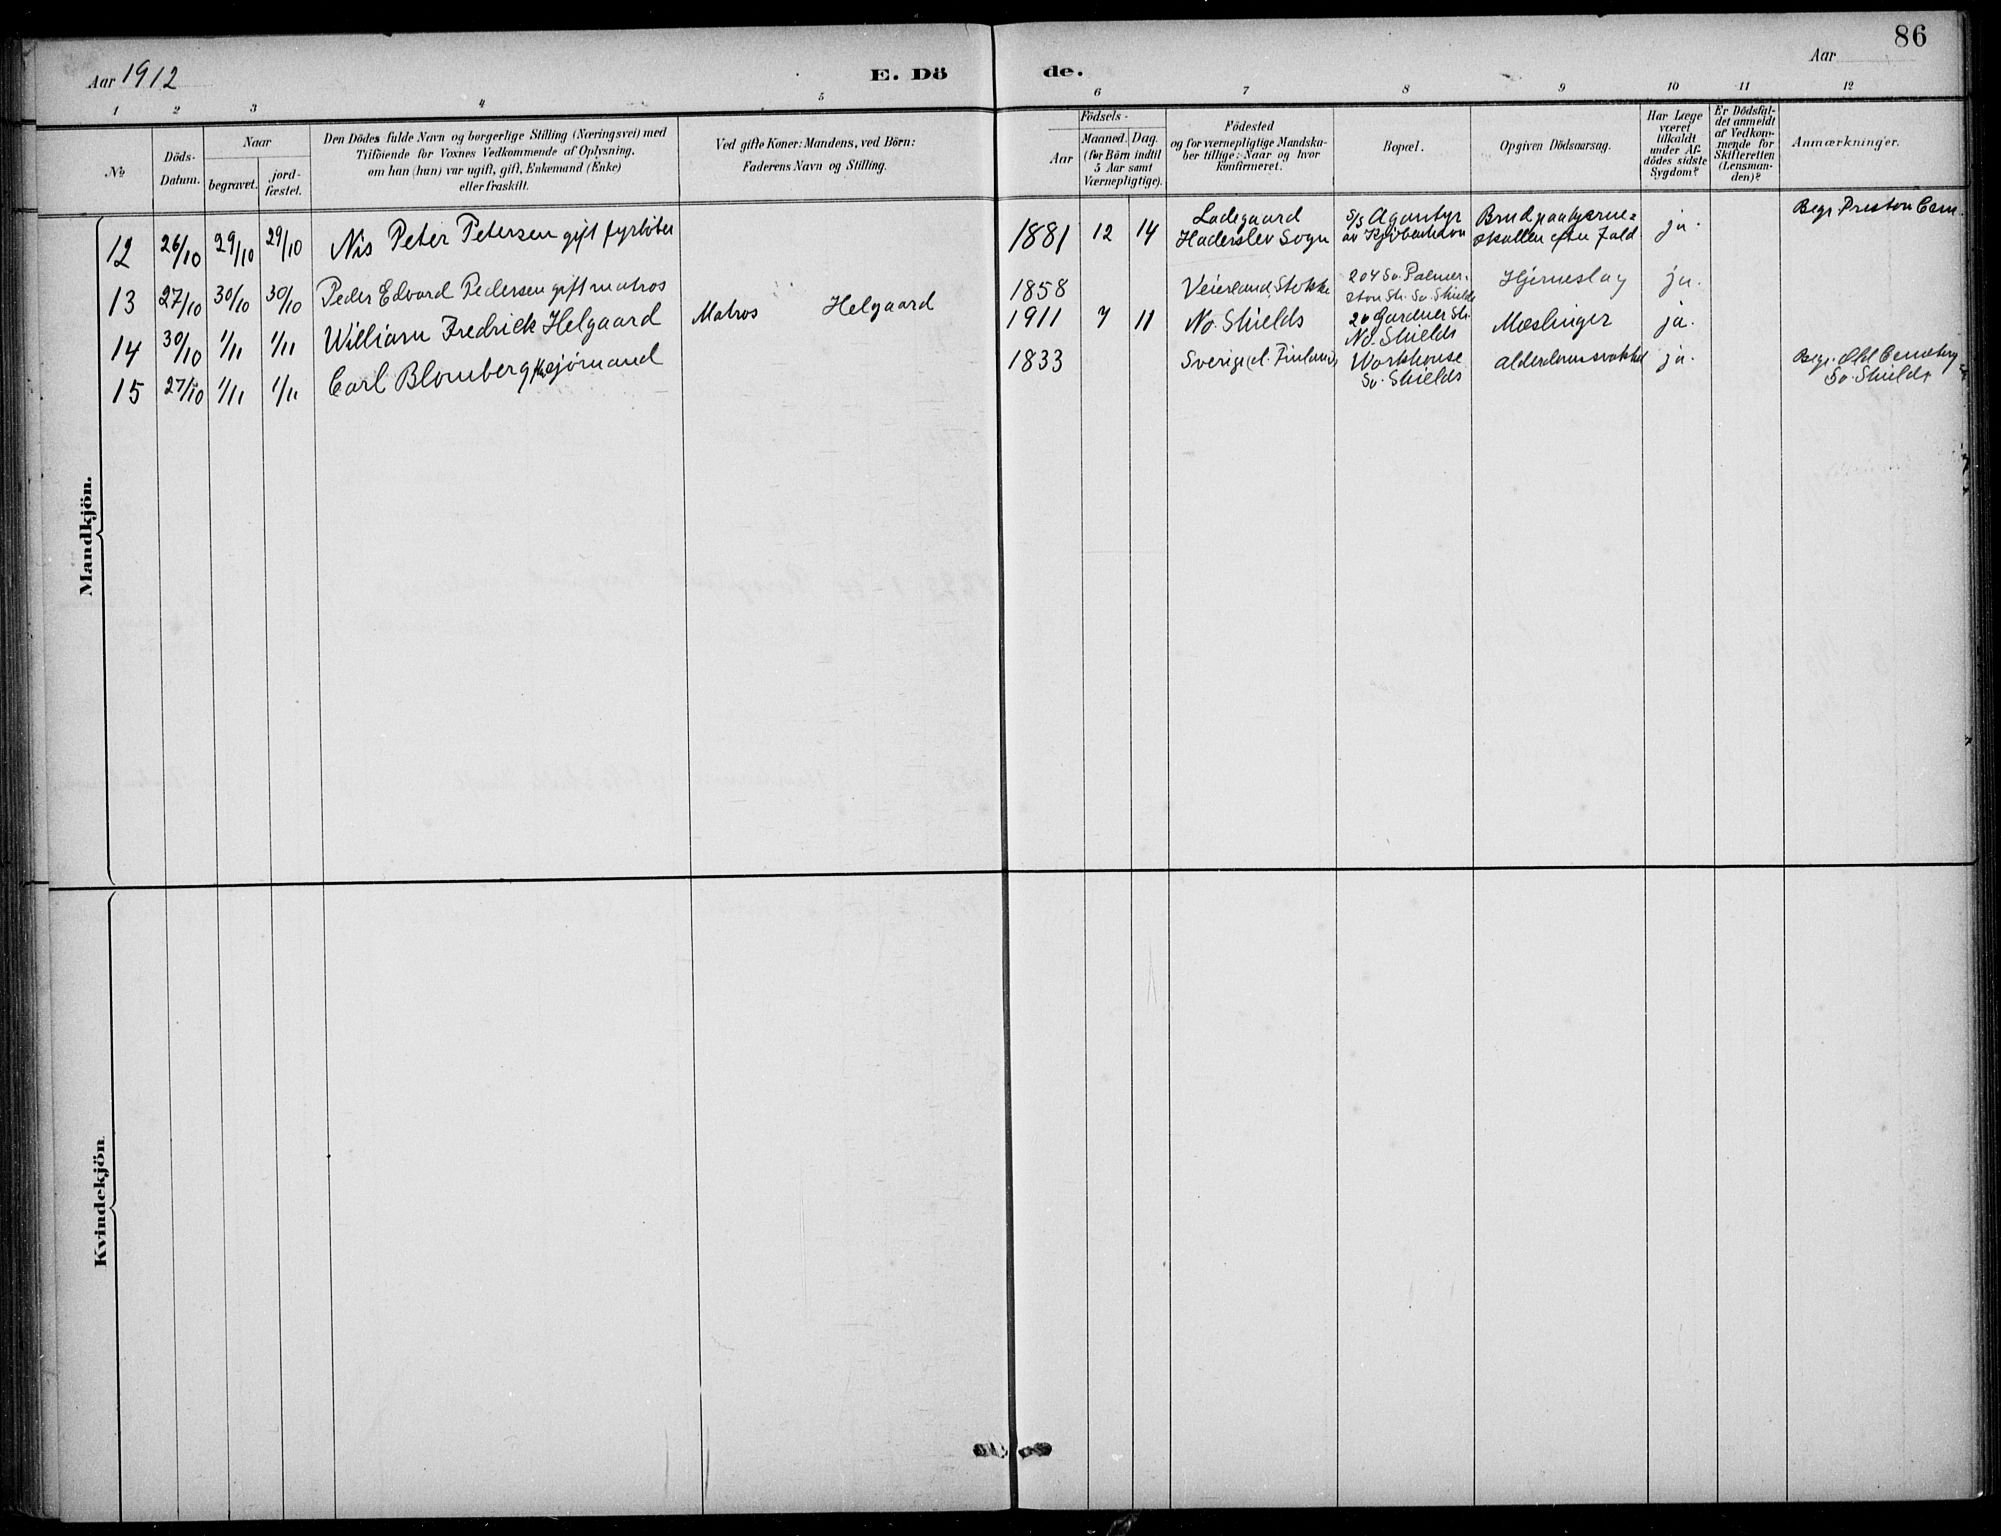 86
Aar 1912
E. Dö
de.
Aar
1 2 3 4 5 6 7 8 9 10 11 12
№
Döds-
Datum.
Naar
begravet.
jord-
fæstet.
Den Dödes fulde Navn og borgerlige Stilling (Næringsvei) med
Tilföiende for Voxnes Vedkommende af Oplysning,
om han (hun) var ugift, gift, Enkemand (Enke)
eller fraskilt.
Ved gifte Koner: Mandens, ved Börn:
Faderens Navn og Stilling.
Födsels-
Aar
Maaned. Dag.
(for Börn indtil
5 Aar samt
Værnepligtige).
Födested
og for værnepligtige Mandska-
ber tillige: Naar og hvor
konfirmeret.
Bopæl.
Opgiven Dödsaarsag.
Har Læge
været
tilkaldt
under Af-
dödes sidste
Sygdom?
Er Dödsfal-
det anmeldt
af Vedkom-
mende for
Skifteretten
(Lensman-
den)?
Anmærkninger.
Mandkjön.
12 26/10 29/10 29/10 Nis Peter Petersen gift fyrbøter 1881 12 14 Ladegaard
Haderslev Sogn
S/S Agantyr
av Kjøbenhavn
Brud paa hjerne=
skallen efter Fald
ja.
Begr. Preston Cem.
13 27/10 30/10 30/10 Peder Edvard Pedersen gift matros 1858 Veierland, Stokke
204 So. Palmer-
ston Str. So. Shields
Hjerneslag ja.
14 30/10 1/11 1/11 William Fredrick Helgaard Matros Helgaard 1911 7 11 No. Shields
20 Gardner Str.
No. Shields
Mæslinger ja.
15 27/10 1/11 1/11 Carl Blomberg sjömand 1833 Sverige (el. Finland)
Workhouse
So. Shields
alderdomssvakhed ja.
Begr. Old Cemetery
So. Shields
Kvindekjön